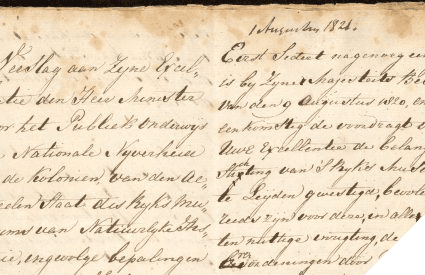 1 Augustus 1821.
Verslag aan Zyne Excel-
tie den Heer Minister
or het Publiek Onderwijs
Nationale Nyverheid
de Kolonien van den Ac-
Staat des Ryks Mu-
van Natuurlyke His-
ie, ingevolge bepalingen
Eerst Sedert nagenoeg een
is by Zyner Majesteits Be
van den 9 Augustus 1820, en
eenkomstig de voordragt v
Uwe Excellentie de belang
Stichting van S Ryks Muse
te Leijden gevestigd, bevole
reeds zyn voor deze, in alle
ten nuttige inrigting, de
Verordeningen door